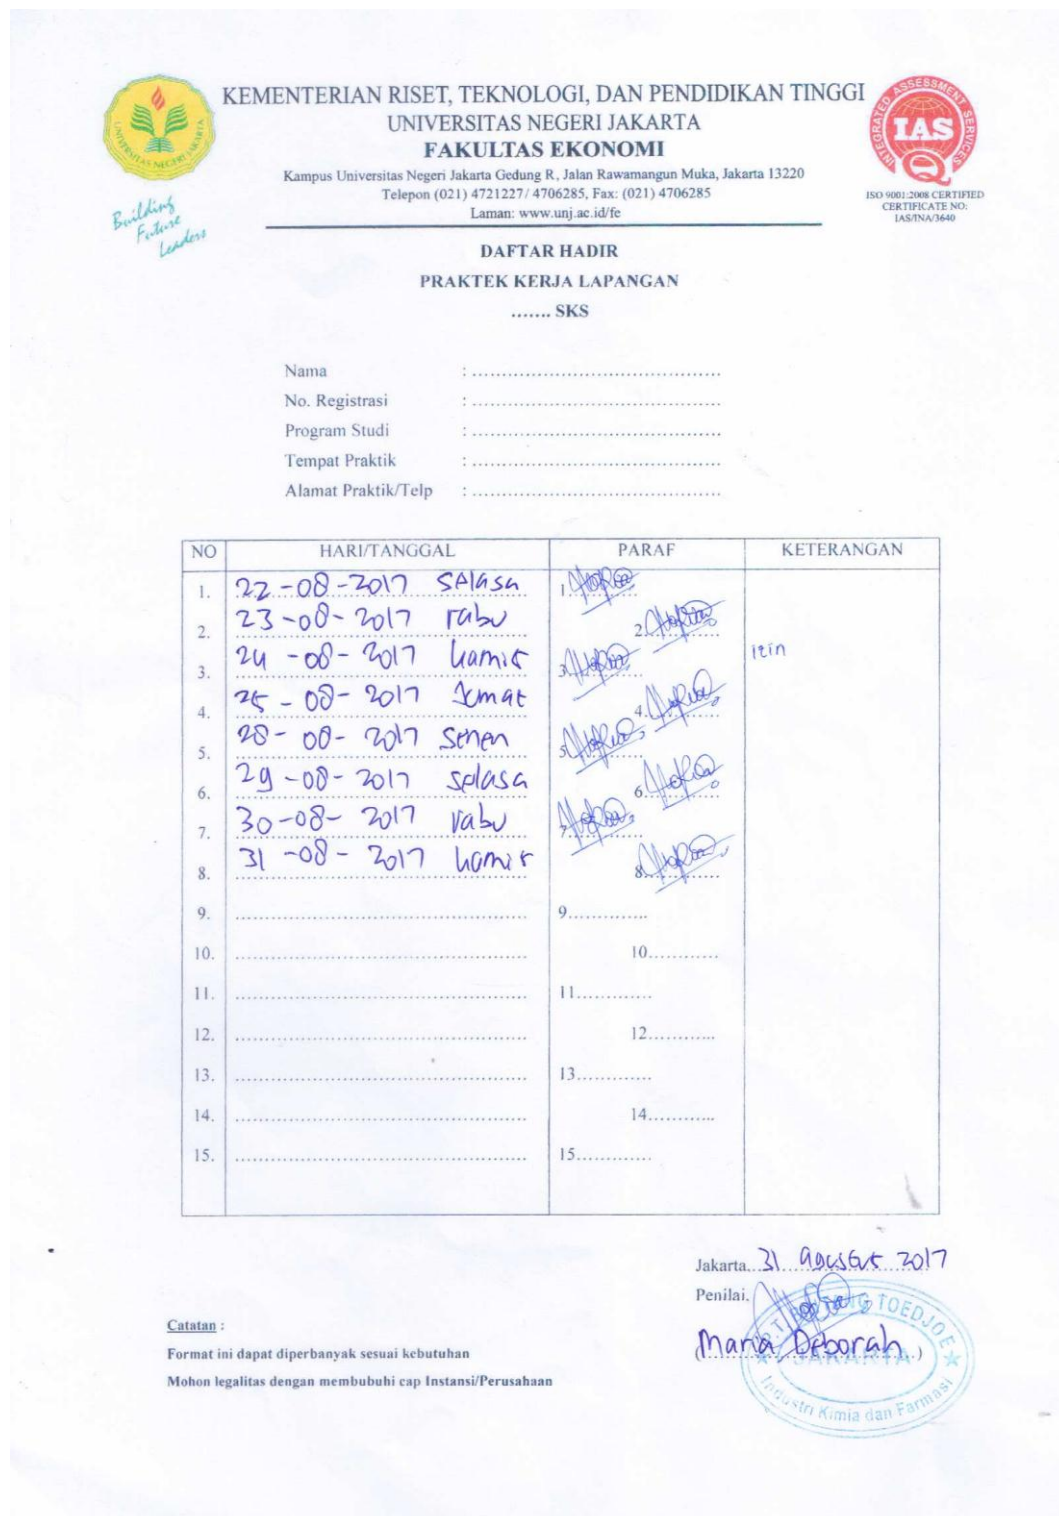 KEMENTERIAN RISET, TEKNOLOGI, DAN PENDIDIKAN TINGGI
UNIVERSITAS NEGERI JAKARTA
FAKULTAS EKONOMI
Kampus Universitas Negeri Jakarta Gedung R, Jalan Rawamangun Muka, Jakarta 13220
Telepon (021) 4721227/ 4706285, Fax: (021) 4706285
Laman: www.unj.ac.id/fe
UNIVERSITAS NEGERI JAKARTA
Building
Future
Leaders
INTEGRATED ASSESSMENT SERVICES
IAS
ISO 9001:2008 CERTIFIED
CERTIFICATE NO:
IAS/INA/3640
DAFTAR HADIR
PRAKTEK KERJA LAPANGAN
....... SKS
Nama : ..........................................
No. Registrasi : ..........................................
Program Studi : ..........................................
Tempat Praktik : ..........................................
Alamat Praktik/Telp : ..........................................
NO HARI/TANGGAL PARAF KETERANGAN
1. 22-08-2017 Selasa 1.
2. 23-08-2017 rabu 2.
3. 24-08-2017 kamis 3. izin
4. 25-08-2017 Jumat 4.
5. 28-08-2017 Senen 5.
6. 29-08-2017 Selasa 6.
7. 30-08-2017 rabu 7.
8. 31-08-2017 kamis 8.
9. .......... 9..............
10. .......... 10............
11. .......... 11.............
12. .......... 12............
13. .......... 13.............
14. .......... 14............
15. .......... 15.............
Jakarta, 31 agustus 2017
Penilai,
(Maria Deborah)
TOEDJOE
JAKARTA
Industri Kimia dan Farmasi
Catatan :
Format ini dapat diperbanyak sesuai kebutuhan
Mohon legalitas dengan membubuhi cap Instansi/Perusahaan